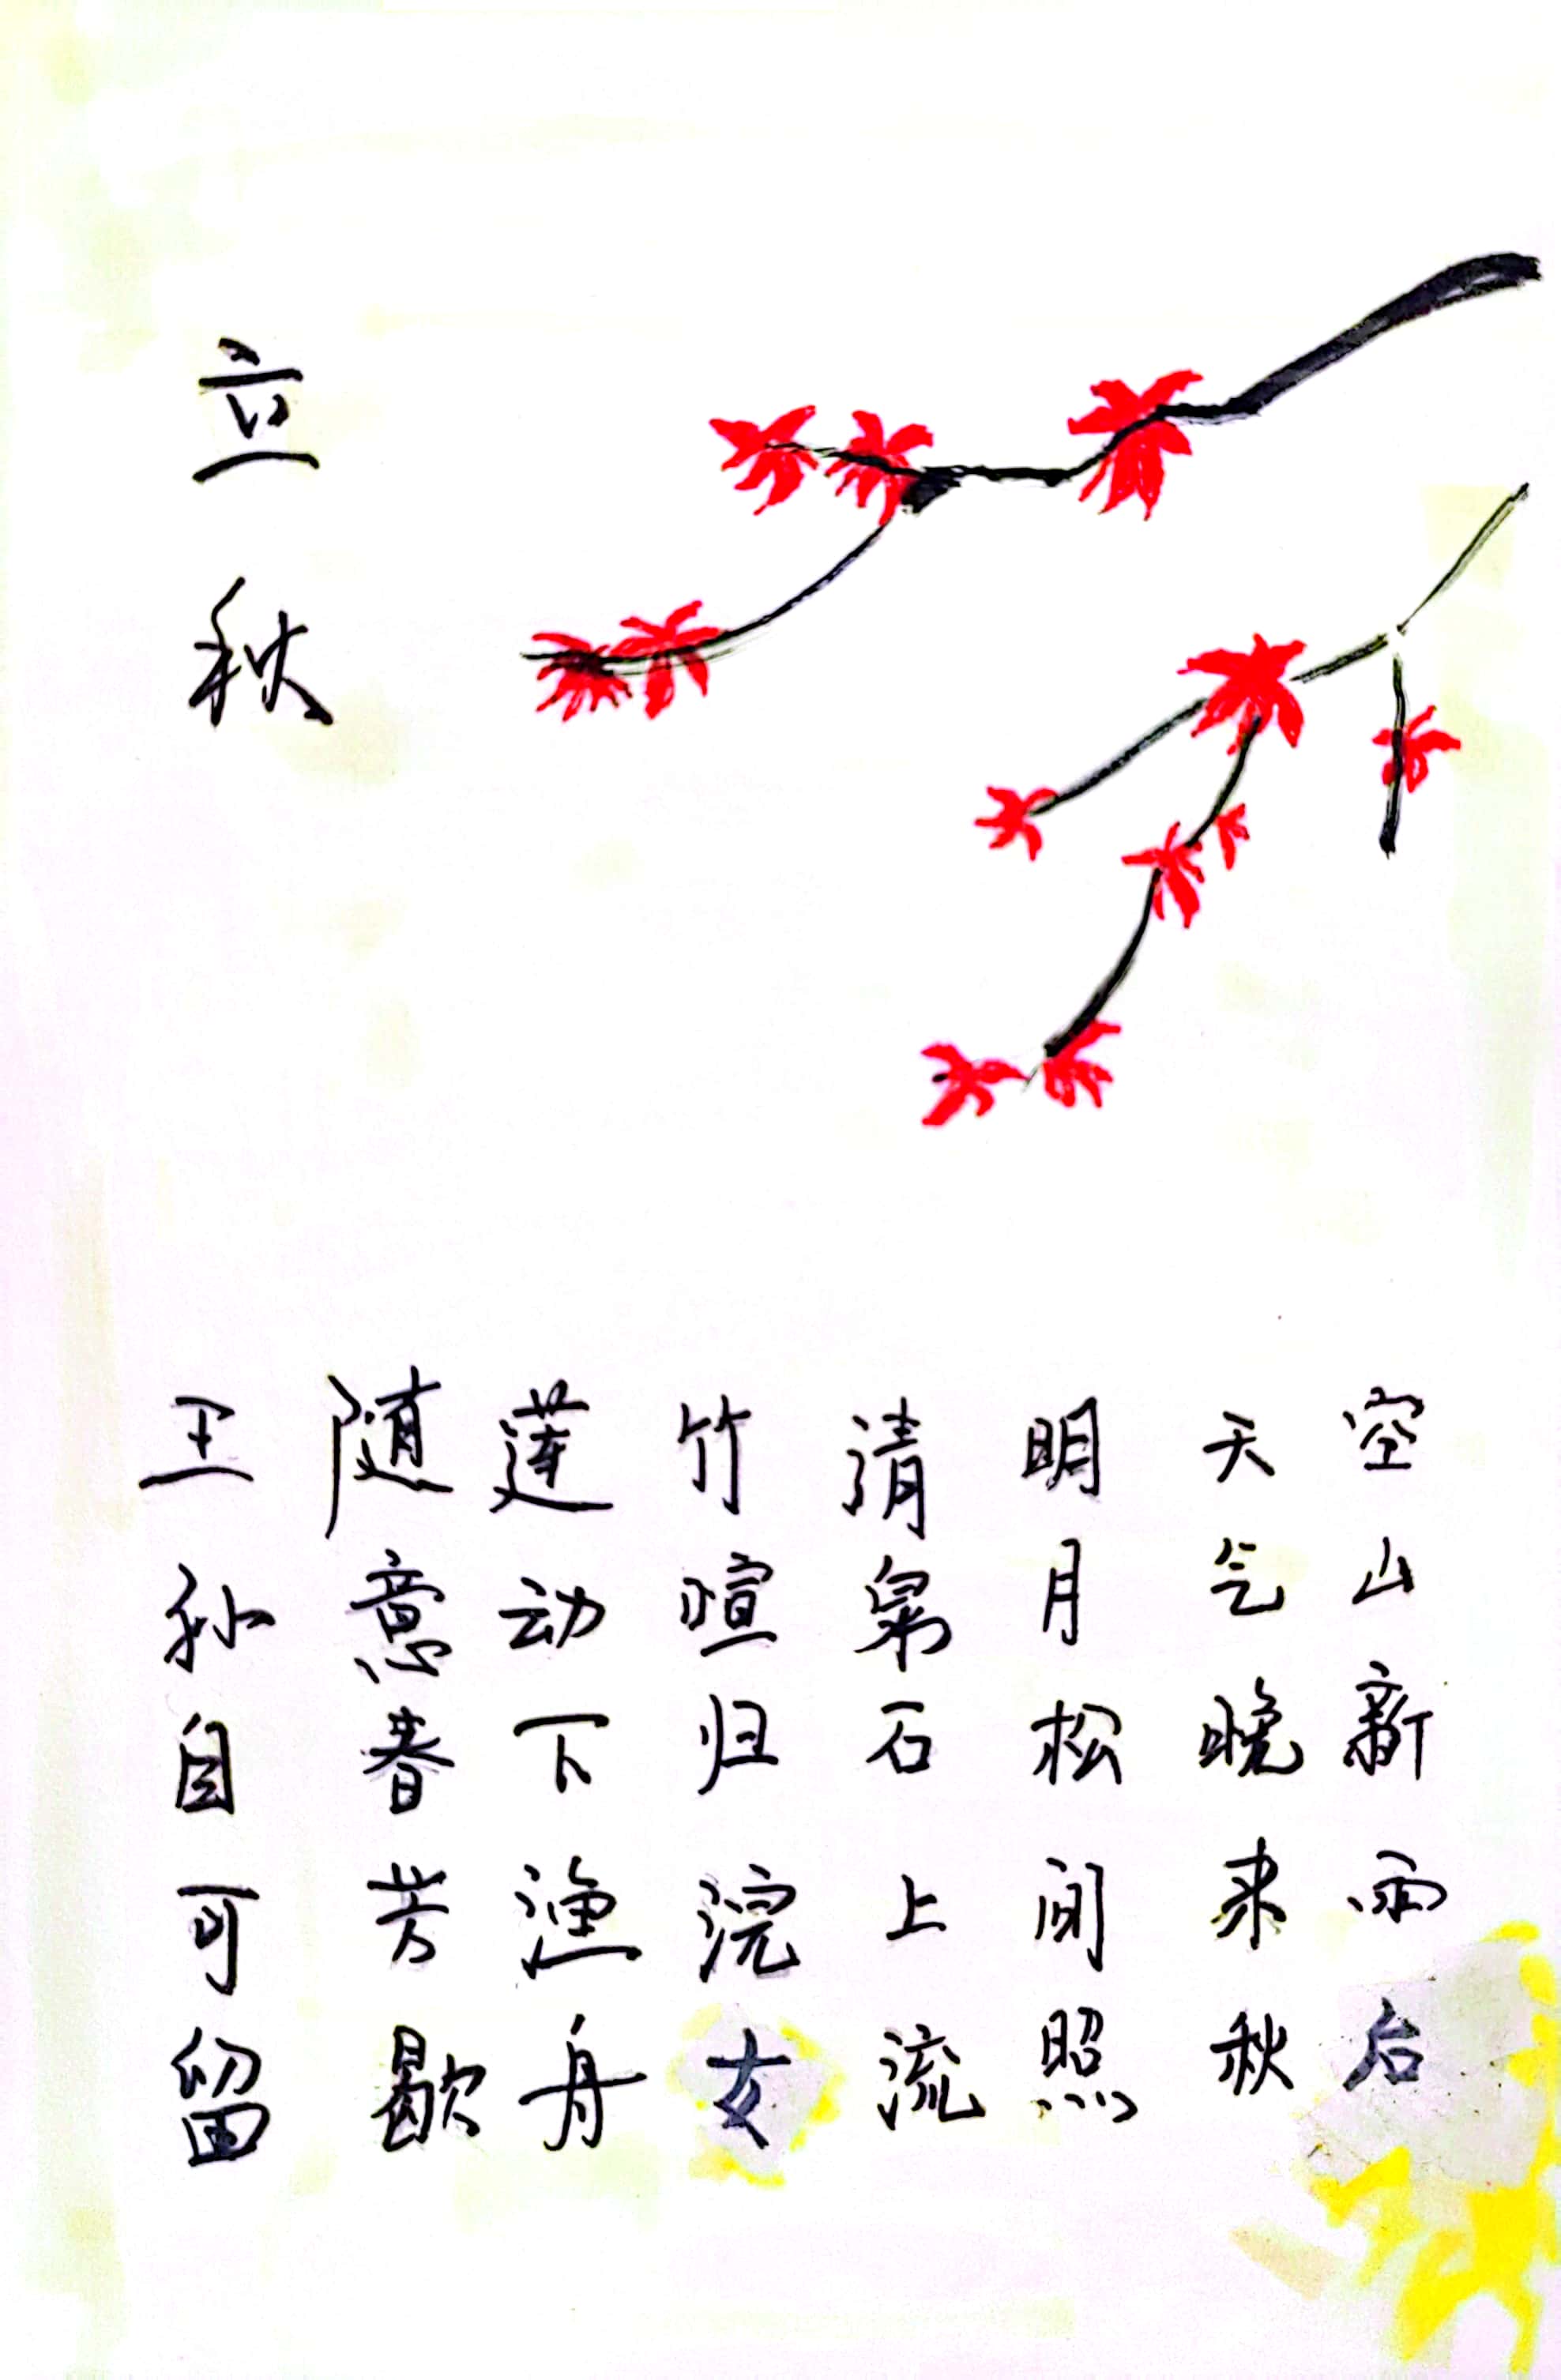 立秋
空山新雨后
天气晚来秋
明月松间照
清泉石上流
竹暄归浣女
莲动下渔舟
随意春芳歇
王孙自可留